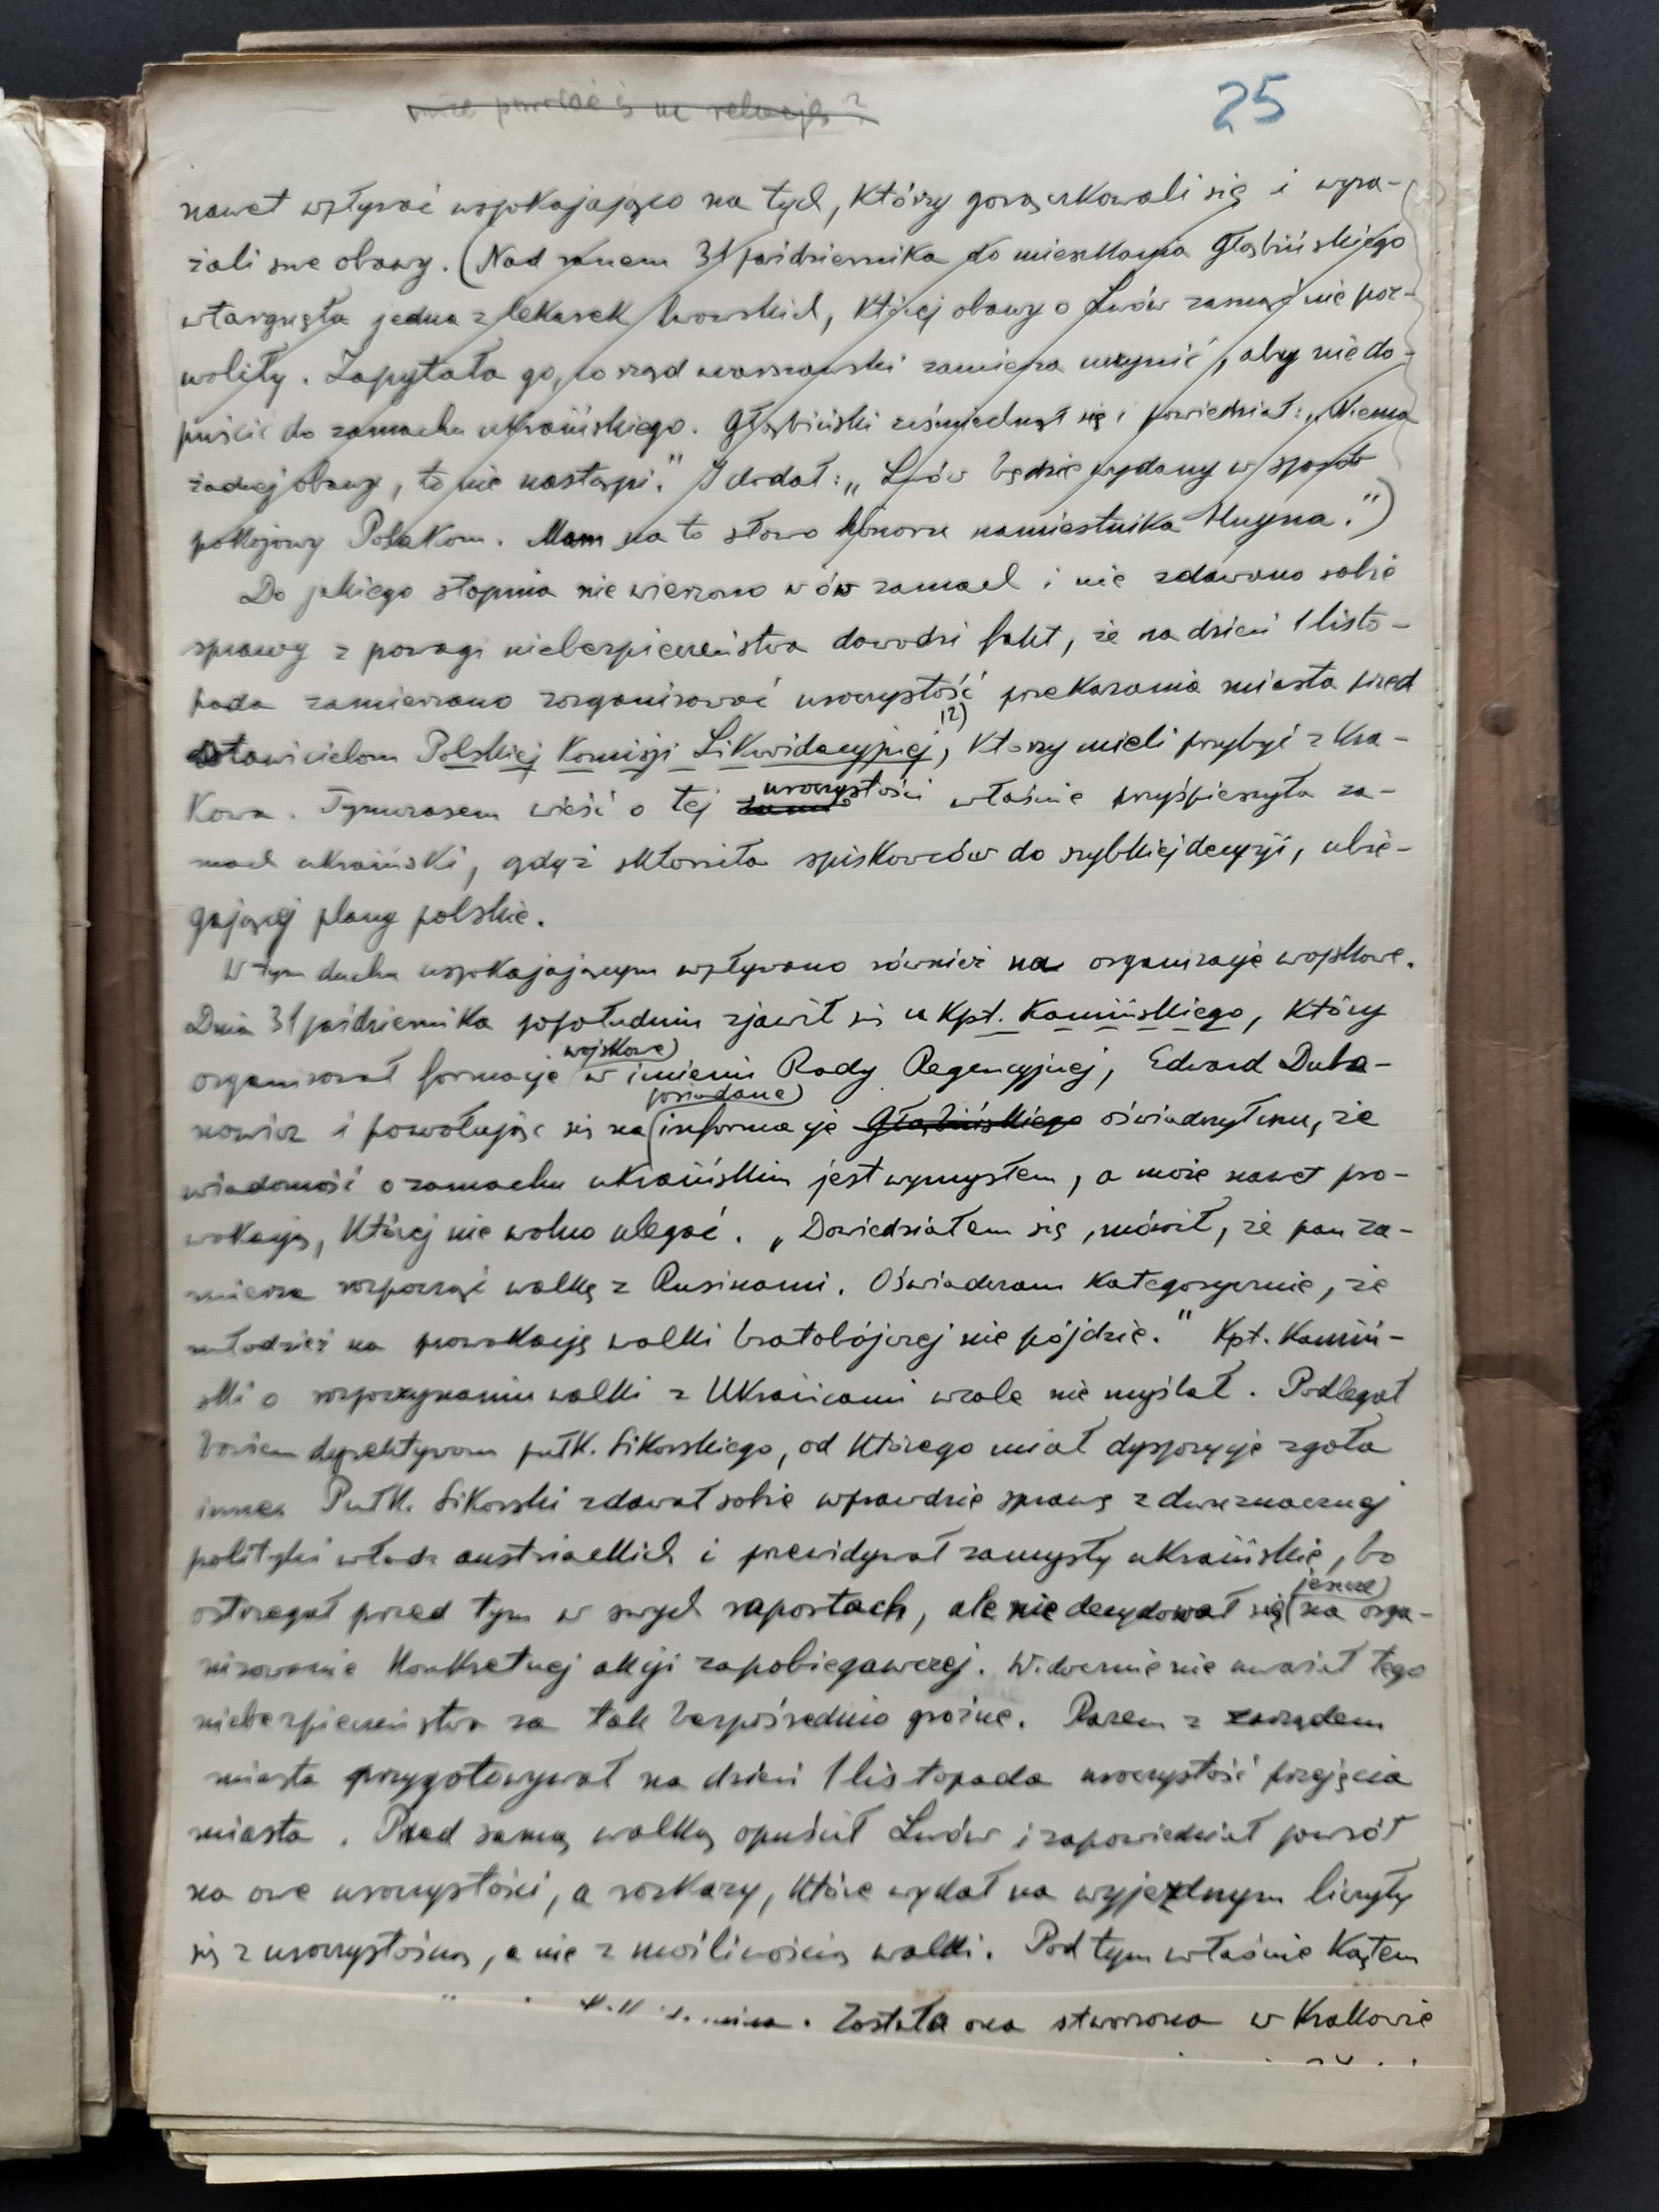 25
nawet wpływać uspokajająco na tych, którzy gorączkowali się i wyra-
żali swe obawy. (Nad ranem 31 października do mieszkania Głąbińskiego
wtargnęła jedna z lekarek lwowskich, której obawy o Lwów zasnąć nie poz-
woliły. Zapytała go, co rząd warszawski zamierza uczynić, aby nie do-
puścić do zamachu ukraińskiego. Głąbiński uśmiechnął się i powiedział: „Niema
żadnej obawy, to nie nastąpi." I dodał: „Lwów będzie wydany w sposób
pokojowy Polakom. Mam na to słowo honoru namiestnika Huyna.")
Do jakiego stopnia nie wierzono w ów zamach i nie zdawano sobie
sprawy z powagi niebezpieczeństwa dowodzi fakt, że na dzień 1 listo-
pada zamierzano zorganizować uroczystość przekazania miasta przed
stawicielom Polskiej Komisji Likwidacyjnej, 12) którzy mieli przybyć z Kra-
kowa. Tymczasem wieść o tej uroczystości właśnie przyśpieszyła za-
mach ukraiński, gdyż skłoniła spiskowców do szybkiej decyzji, ubie-
gającej plany polskie.
W tym duchu uspokajającym wpływano również na organizacje wojskowe.
Dnia 31 października popołudniu zjawił się u kpt. Kamińskiego, który
organizował formacje wojskowe w imieniu Rady Regencyjnej, Edward Duba-
nowicz i powołując się na posiadane informacje Głąbińskiego oświadczył mu, że
wiadomość o zamachu ukraińskim jest wymysłem, a może nawet pro-
wokacją, której nie wolno ulegać. „Dowiedziałem się, mówił, że pan za-
mierza rozpocząć walkę z Rusinami. Oświadczam kategorycznie, że
młodzież na prowokację walki bratobójczej nie pójdzie." Kpt. Kamiń-
ski o rozpoczynaniu walki z Ukraińcami wcale nie myślał. Podlegał
bowiem dyrektywom płk. Sikorskiego, od którego miał dyspozycje zgoła
inne. Płk. Sikorski zdawał sobie wprawdzie sprawę z dwuznacznej
polityki władz austriackich i przewidywał zamysły ukraińskie, bo
ostrzegał przed tym w swych raportach, ale nie decydował się jeszcze na orga-
nizowanie konkretnej akcji zapobiegawczej. Widocznie nie uważał tego
niebezpieczeństwa za tak bezpośrednio groźne. Razem z zarządem
miasta przygotowywał na dzień 1 listopada uroczystość przejęcia
miasta. Przed samą walką opuścił Lwów i zapowiedział powrót
na owe uroczystości, a rozkazy, które wydał na wyjezdnym liczyły
się z uroczystością, a nie z możliwością walki. Pod tym właśnie kątem
Została ona stworzona w Krakowie